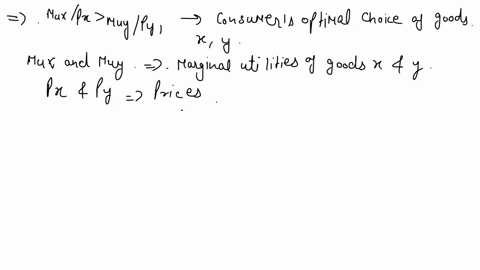 => . Mux/Px > Muy/Py, → Consumer's optimal choice of goods.
x, y.
Mux and Muy. => . Marginal utilities of goods x & y.
Px & Py => Prices.